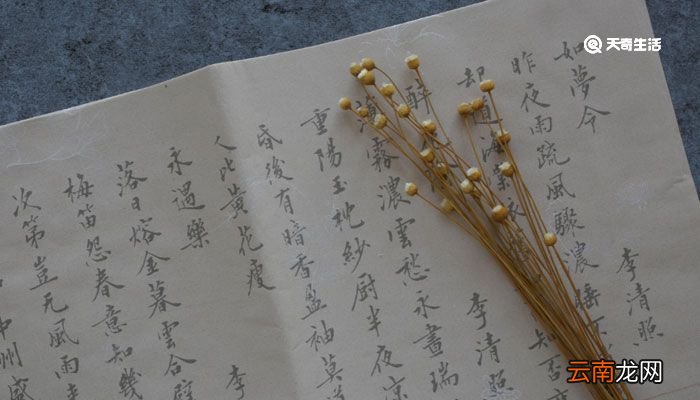 天奇生活
如夢令 李清照
昨夜雨疏風驟濃睡不
却道海棠依 知否
醉 李清照
薄霧濃雲愁永晝瑞
重陽玉枕紗厨半夜涼
昏後有暗香盈袖莫道
人比黃花瘦
永遇樂 李
落日熔金暮雲合璧
梅笛怨春意知幾
次第豈无風雨來
中州盛
云南龙网